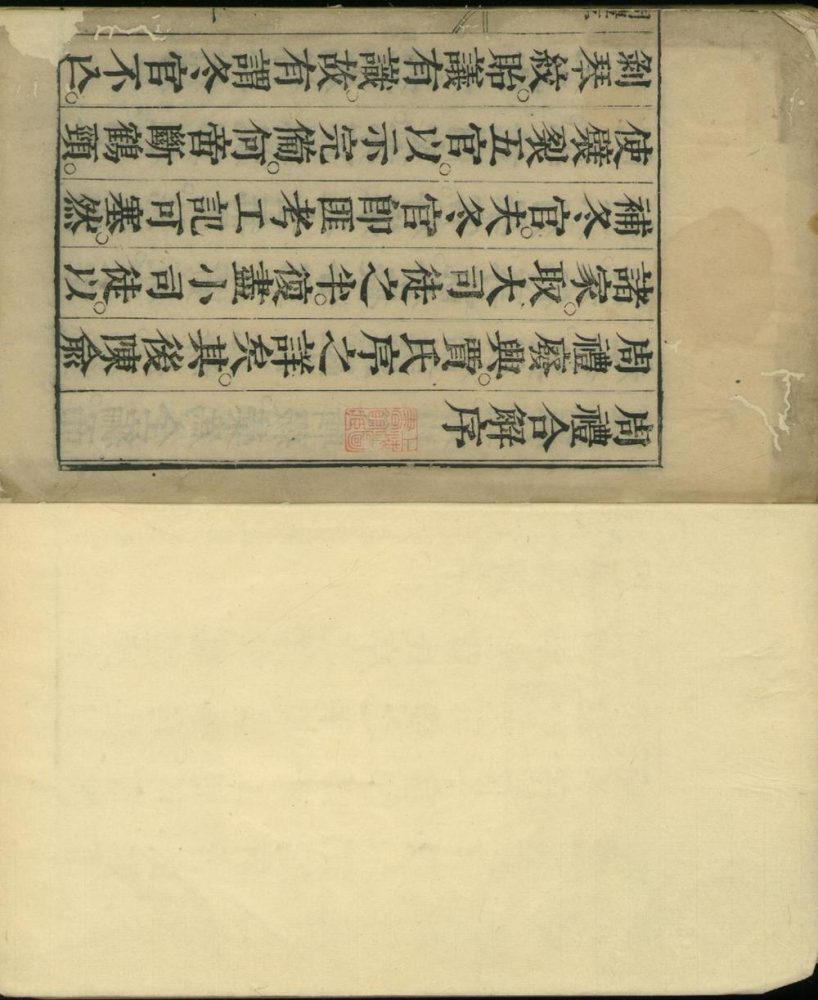 周禮合解序
周禮廢興。賈氏序之詳矣。其後陳俞
諸家。取大司徒之半。復盡小司徒。以
補冬官。夫冬官卽匪考工記可塞。然
使襞裂五官。以示完備。何啻斷鶴頸。
剝琴紋。貽議有識。故有謂冬官不亡。